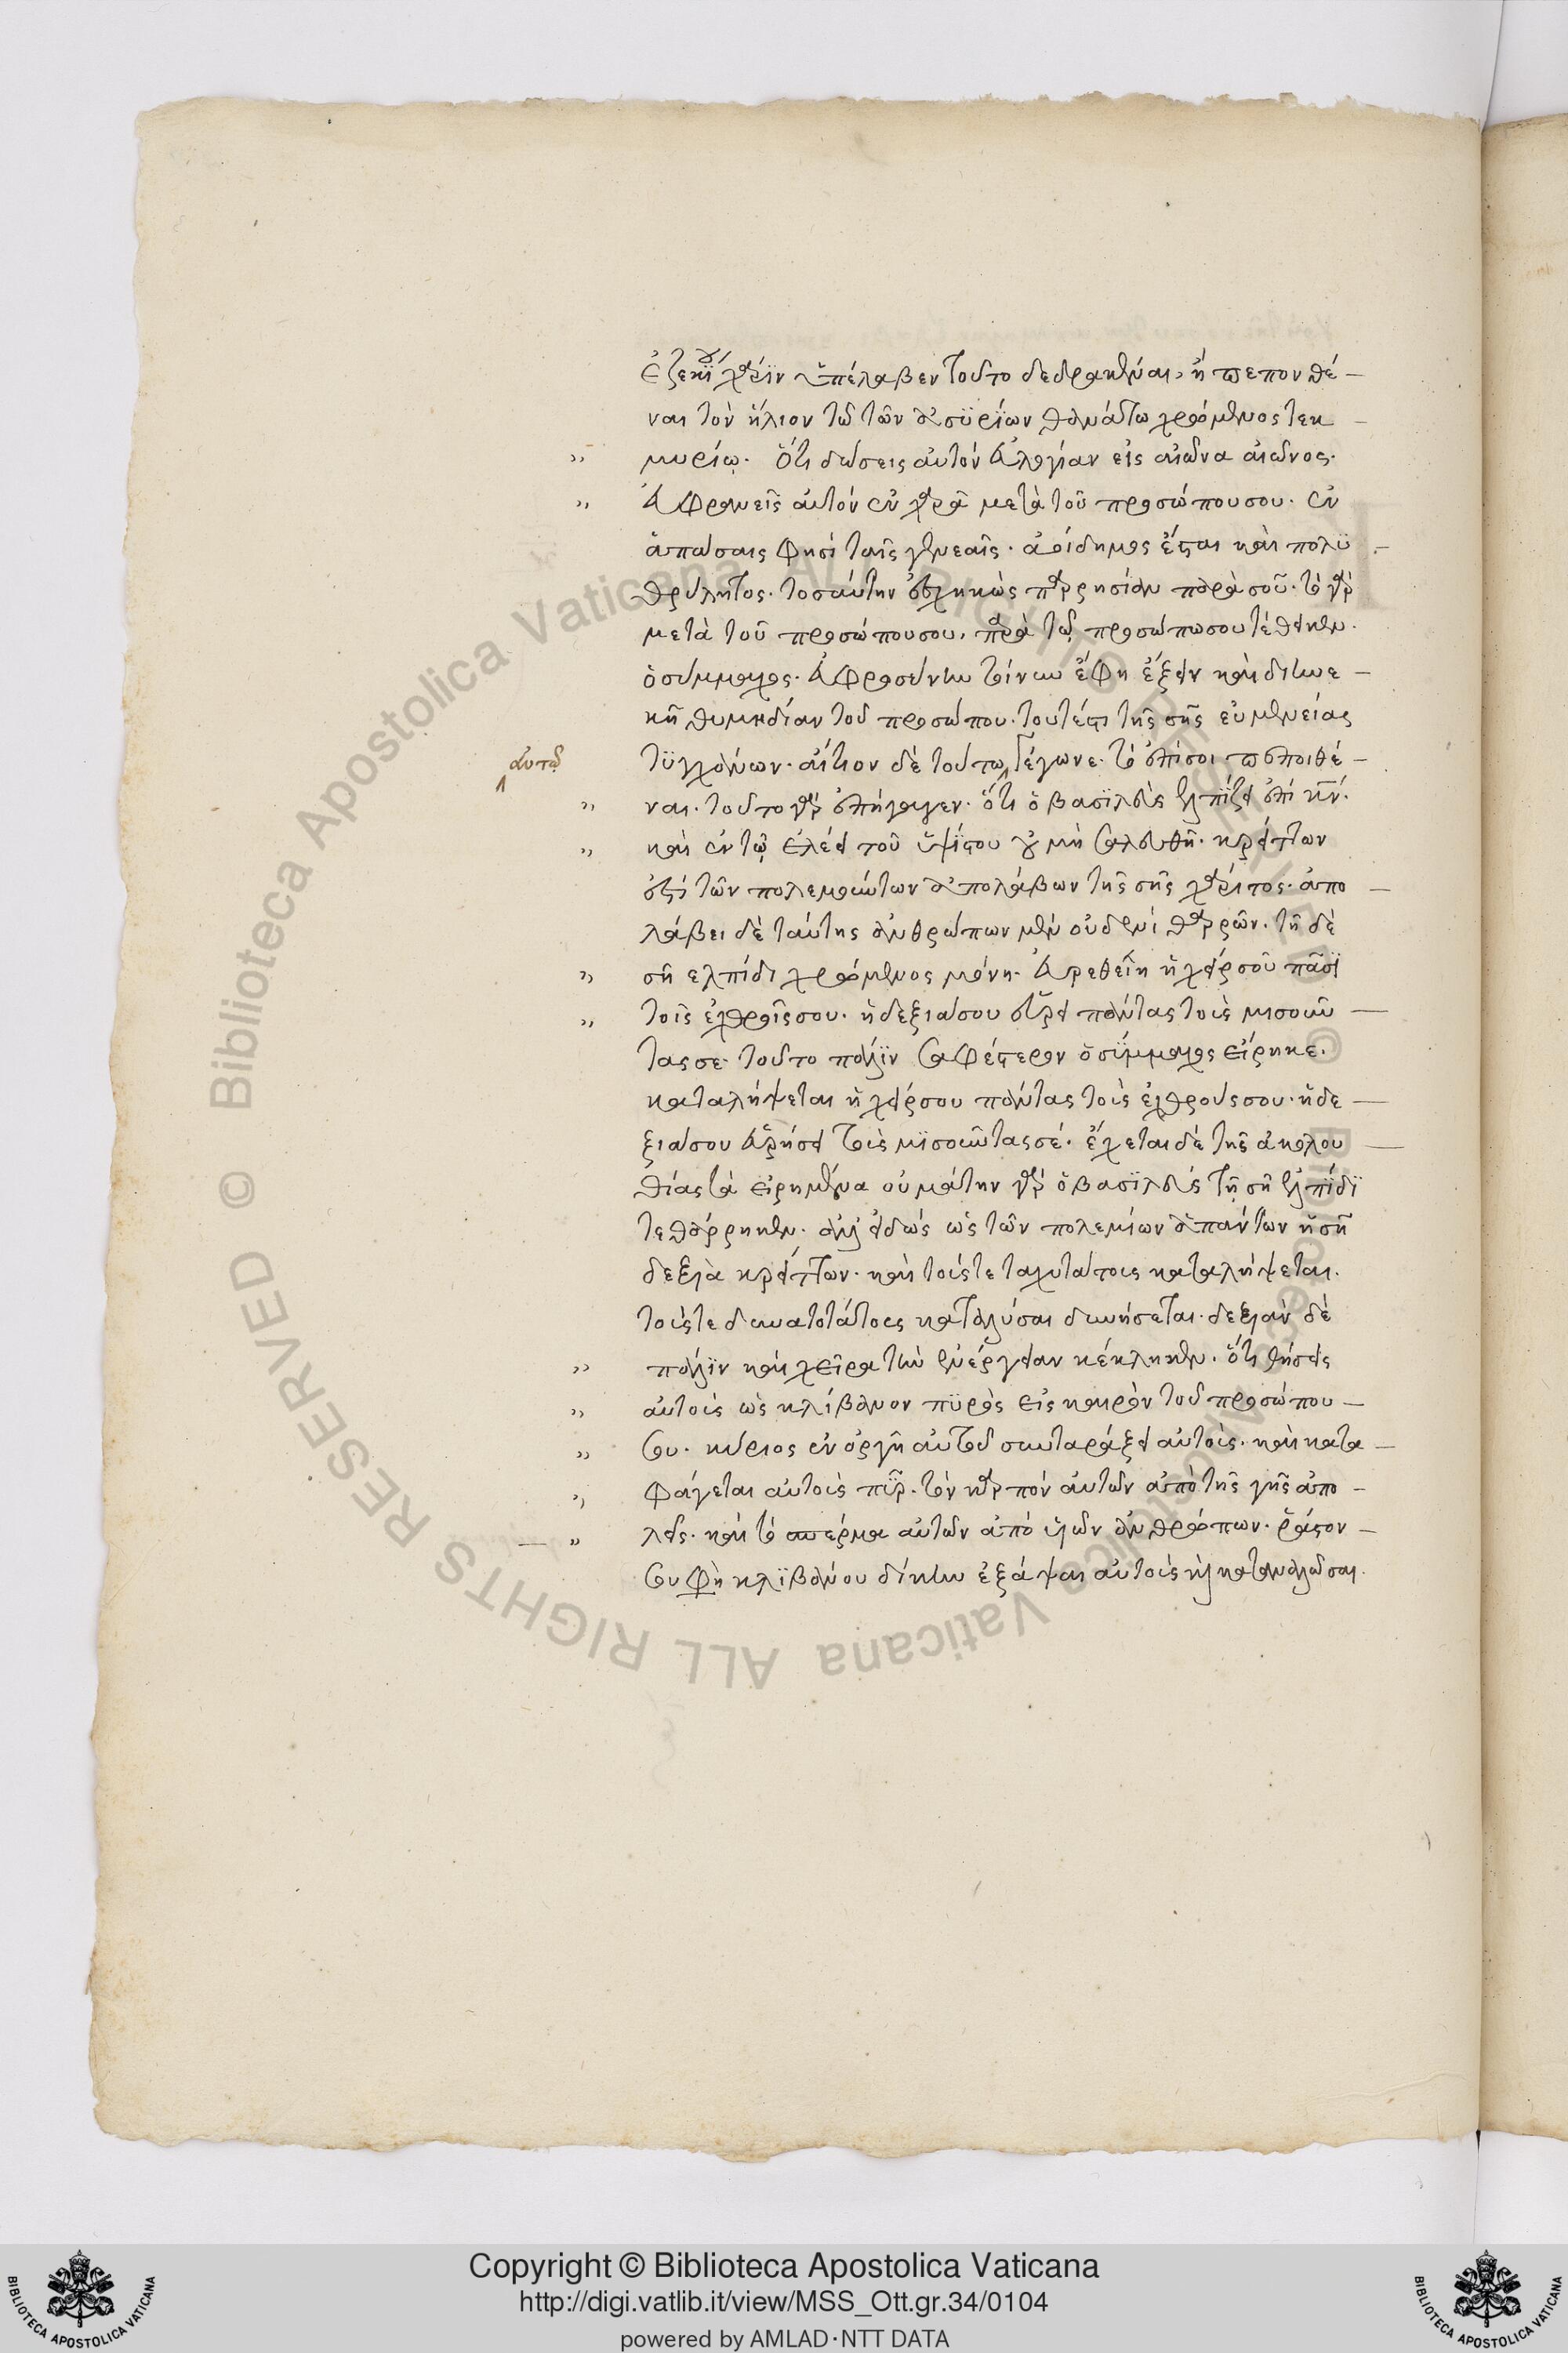 ἐζεκίου χάριν ὑπέλαβεν τοῦτο δεδρακέναι, ἢ πεπονθέ-
ναι τὸν ἥλιον τῶ τῶν ἀσυρίων θανάτω χρώμενος τεκ-
,, μηρίω. ὅτι δώσεις αὐτὸν εὐλογίαν εἰς αἰῶνα αἰῶνος.
,, εὐφρανεῖς αὐτὸν ἐν χαρᾶ μετὰ τοῦ προσώπου σου. ἐν
ἁπάσαις φησὶ ταῖς γενεαῖς. ἀοίδημος ἔσται καὶ πολυ-
θρύλητος. τοσαύτην ἐσχηκὼς παρρησίαν παρὰ σοῦ. τὸ γὰρ
μετὰ τοῦ προσώπου σου, παρὰ τῶ προσώπω σου τέθεικεν.
ὁ σύμμαχος. εὐφροσύνην τοίνυν ἔφη ἕξειν καὶ διηνε-
κῆ θυμηδίαν τοῦ προσώπου. τουτέστι τῆς σῆς εὐμενείας
τυγχάνων. αἴτιον δὲ τούτων γέγονε. τὸ ἐπί σοι πεποιθέ-
αὐτῶ
,, ναι. τοῦτο γὰρ ἐπήγαγεν. ὅτι ὁ βασιλεὺς ἐλπίζει ἐπὶ κν.
,, καὶ ἐν τῶ ἐλέει τοῦ ὑψίστου οὐ μὴ σαλευθῆ. κρείττων
ἐστὶ τῶν πολεμούντων ἀπολάβων τῆς σῆς χάριτος. ἀπο-
λάβει δὲ ταύτης ἀνθρώπων μὲν οὐδενὶ θαρρῶν. τῆ δὲ
,, σῆ ελπίδι χρώμενος μόνη. εὑρεθείη ἡ χείρ σοῦ πᾶσι
,, τοῖς ἐχθροῖς σου. ἡ δεξιά σου εὕροι πάντας τοὺς μισοῦν-
τας σε. τοῦτο πάλιν σαφέστερον ὁ σύμμαχος εἴρηκε.
καταλήψεται ἡ χείρ σου πάντας τοὺς ἐχθρούς σου. ἡ δε-
ξιά σου εὑρήσει τοὺς μισοῦντας σέ. ἔχεται δὲ τῆς ἀκολου-
θίας τὰ εἰρημένα οὐ μάτην γὰρ ὁ βασιλεὺς τῆ σῆ ἐλπίδι
τεθάρρηκεν. ἀλλ' εἰδὼς ὡς τῶν πολεμίων ἁπάντων ἡ σὴ
δεξιὰ κρείττων. καὶ τούς τε ταχυτάτους καταλήψεται.
τούς τε δυνατοτάτους καταλύσαι δυνήσεται. δεξιὰν δὲ
,, πάλιν καὶ χεῖρα τὴν ἐνέργειαν κέκληκεν. ὅτι θήσεις
,, αὐτοὺς ὡς κλίβανον πυρὸς εἰς καιρὸν τοῦ προσώπου
,, σου. κύριος ἐν ὀργῆ αὐτοῦ συνταράξει αὐτοὺς. καὶ κατα-
,, φάγεται αὐτοὺς πῦρ. τὸν καρπὸν αὐτῶν ἀπὸ τῆς γῆς ἀπο-
,, λεῖς. καὶ τὸ σπέρμα αὐτῶν ἀπὸ υἱῶν ἀνθρώπων. ῥάστον
σου φὴ κλιβάνου δίκην ἐξάψαι αὐτοὺς καὶ καταναλῶσαι.
Copyright © Biblioteca Apostolica Vaticana
http://digi.vatlib.it/view/MSS_Ott.gr.34/0104
powered by AMLAD·NTT DATA
BIBLIOTECA APOSTOLICA VATICANA
BIBLIOTECA APOSTOLICA VATICANA
Biblioteca Apostolica Vaticana ALL RIGHTS RESERVED © Biblioteca Apostolica Vaticana ALL RIGHTS RESERVED ©